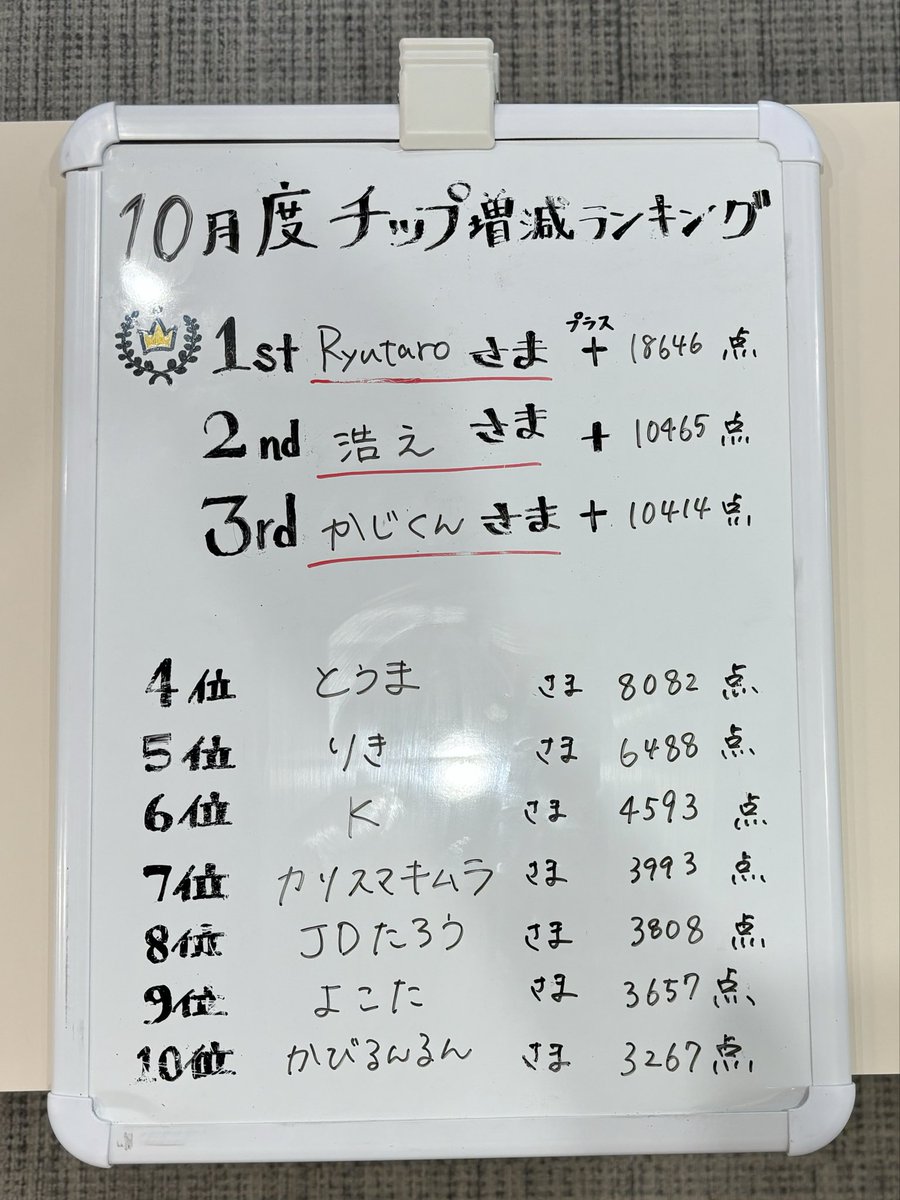 10月度チップ増減ランキング
プラス
1st Ryutaro さま + 18646 点
2nd 浩え さま + 10465 点
3rd かじくん さま + 10414 点
4位 とうま さま 8082 点
5位 りき さま 6488 点
6位 K さま 4593 点
7位 カリスマキムラ さま 3993 点
8位 JDたろう さま 3808 点
9位 よこた さま 3657 点
10位 かびるんるん さま 3267 点